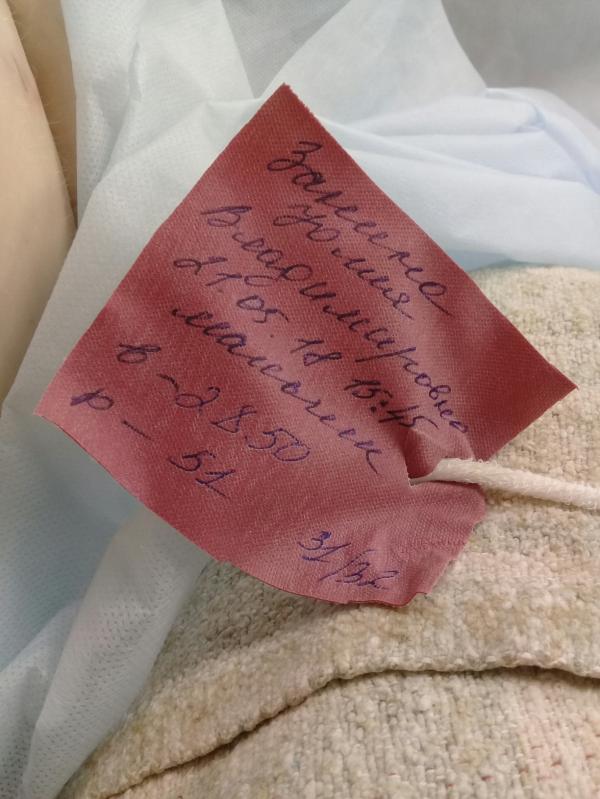 Занина
Юлия
Владимировна
21.05.18 15:45
мальчик
в - 2850
р - 51
31/32